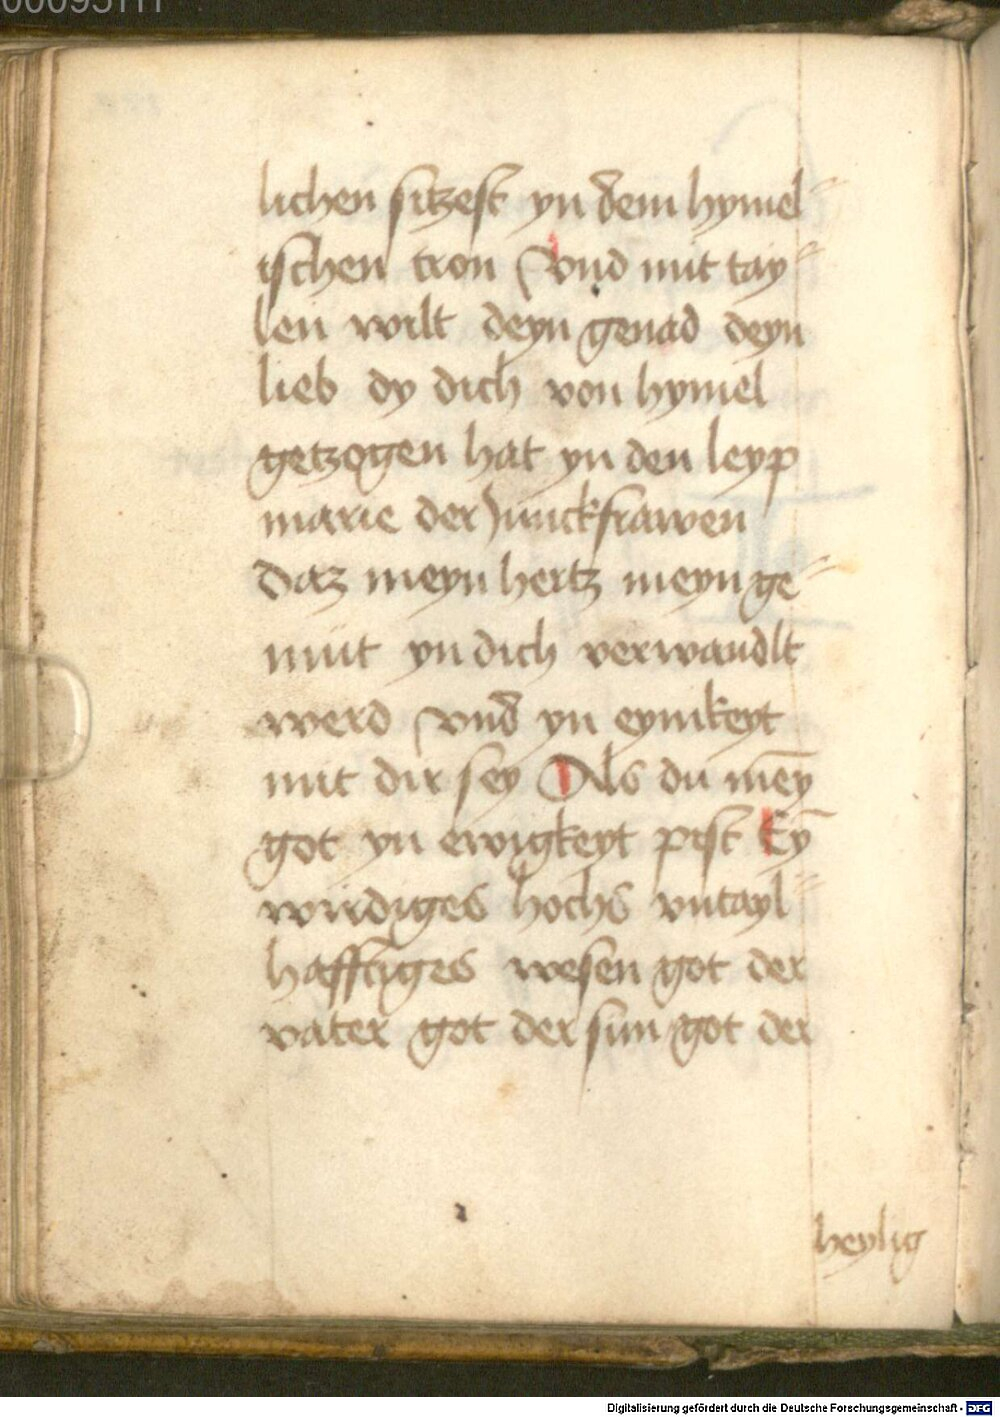 lichen sitzest yn dem hymel⸗
ischen tron Vnd mit tay⸗
len wilt deyn genad deyn
lieb dy dich von hymel
getzogen hat yn den leyp
marie der Junckfrawen
daz meyn hertz meyn ge⸗
müt yn dich verwandlt
werd vnd yn eynikeyt
mit dir sey Als du mey̅
got yn ewigkeyt pist Ey̅
wirdiges hochs vntayl⸗
hafftiges wesen got der
vater got der sun got der
heylig
Digitalisierung gefördert durch die Deutsche Forschungsgemeinschaft - DFG